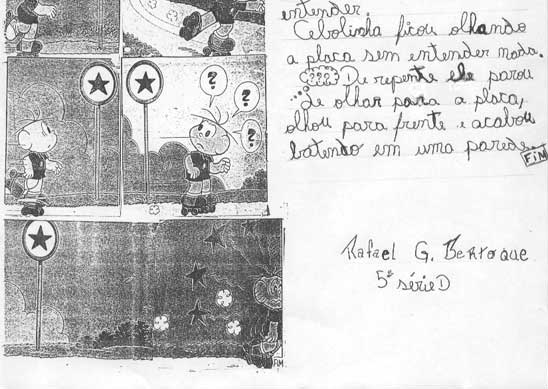 entender.
Cebolinha ficou olhando
a placa sem entender nada.
??? De repente ele parou
de olhar para a placa,
olhou para frente e acabou
batendo em uma parede.
FIM
?
?
?
FIM
Rafael G. Bertoque
5ª série D